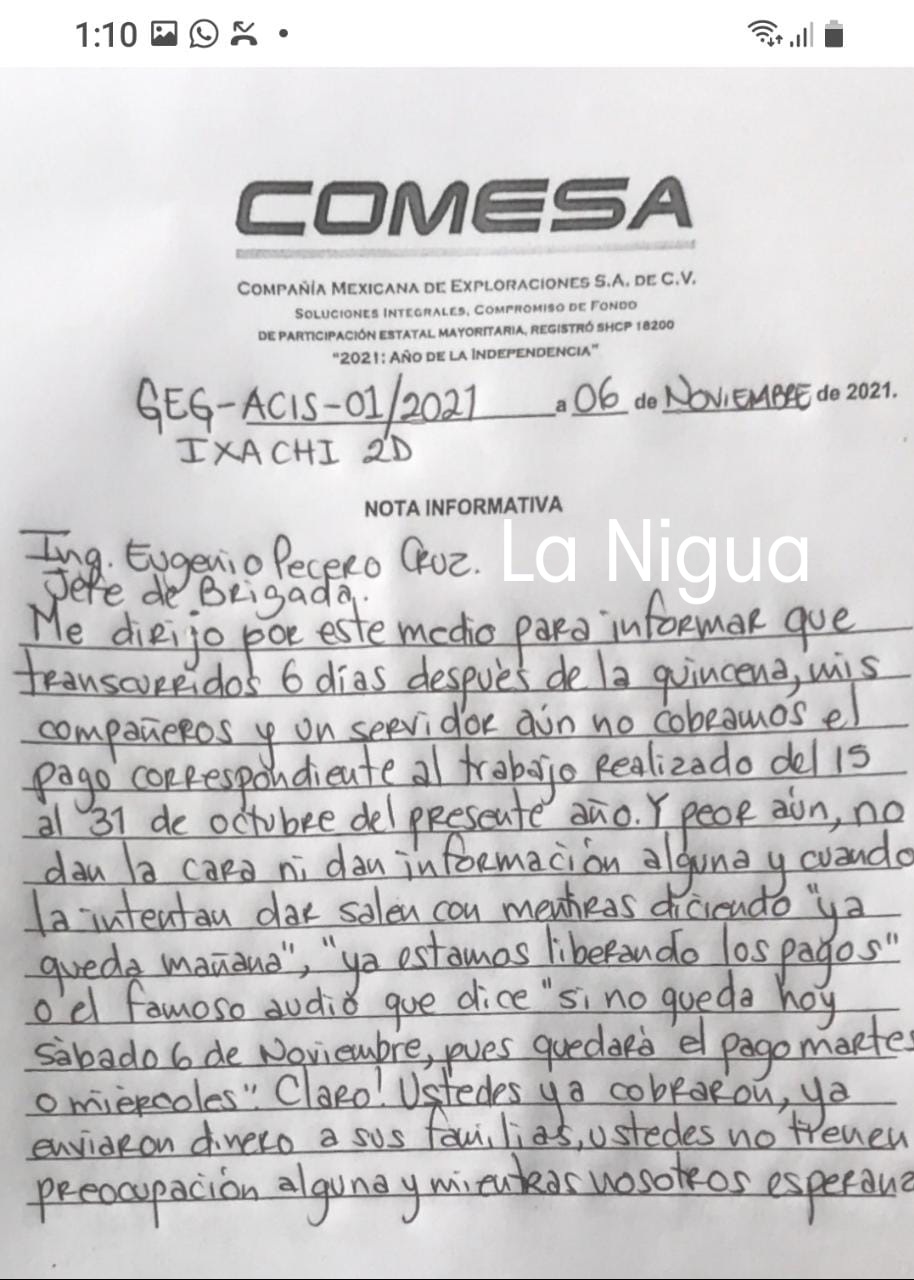 1:10
COMESA
COMPAÑÍA MEXICANA DE EXPLORACIONES S.A. DE C.V.
SOLUCIONES INTEGRALES, COMPROMISO DE FONDO
DE PARTICIPACIÓN ESTATAL MAYORITARIA, REGISTRÓ SHCP 18200
"2021: AÑO DE LA INDEPENDENCIA"
GEG-ACIS-01/2021 a 06 de NOVIEMBRE de 2021.
IXACHI 2D
NOTA INFORMATIVA
Ing. Eugenio Pecero Cruz.
La Nigua
Jefe de Brigada.
Me dirijo por este medio para informar que
transcurridos 6 días después de la quincena, mis
compañeros y un servidor aún no cobramos el
pago correspondiente al trabajo realizado del 15
al 31 de octubre del presente año. Y peor aún, no
dan la cara ni dan información alguna y cuando
la intentan dar salen con mentiras diciendo "ya
queda mañana", "ya estamos liberando los pagos"
o el famoso audio que dice "si no queda hoy
sàbado 6 de Noviembre, pues quedarà el pago martes
o mièrcoles". Claro! Ustedes ya cobraron, ya
enviaron dinero a sus familias, ustedes no tienen
preocupación alguna y mientras nosotros esperana